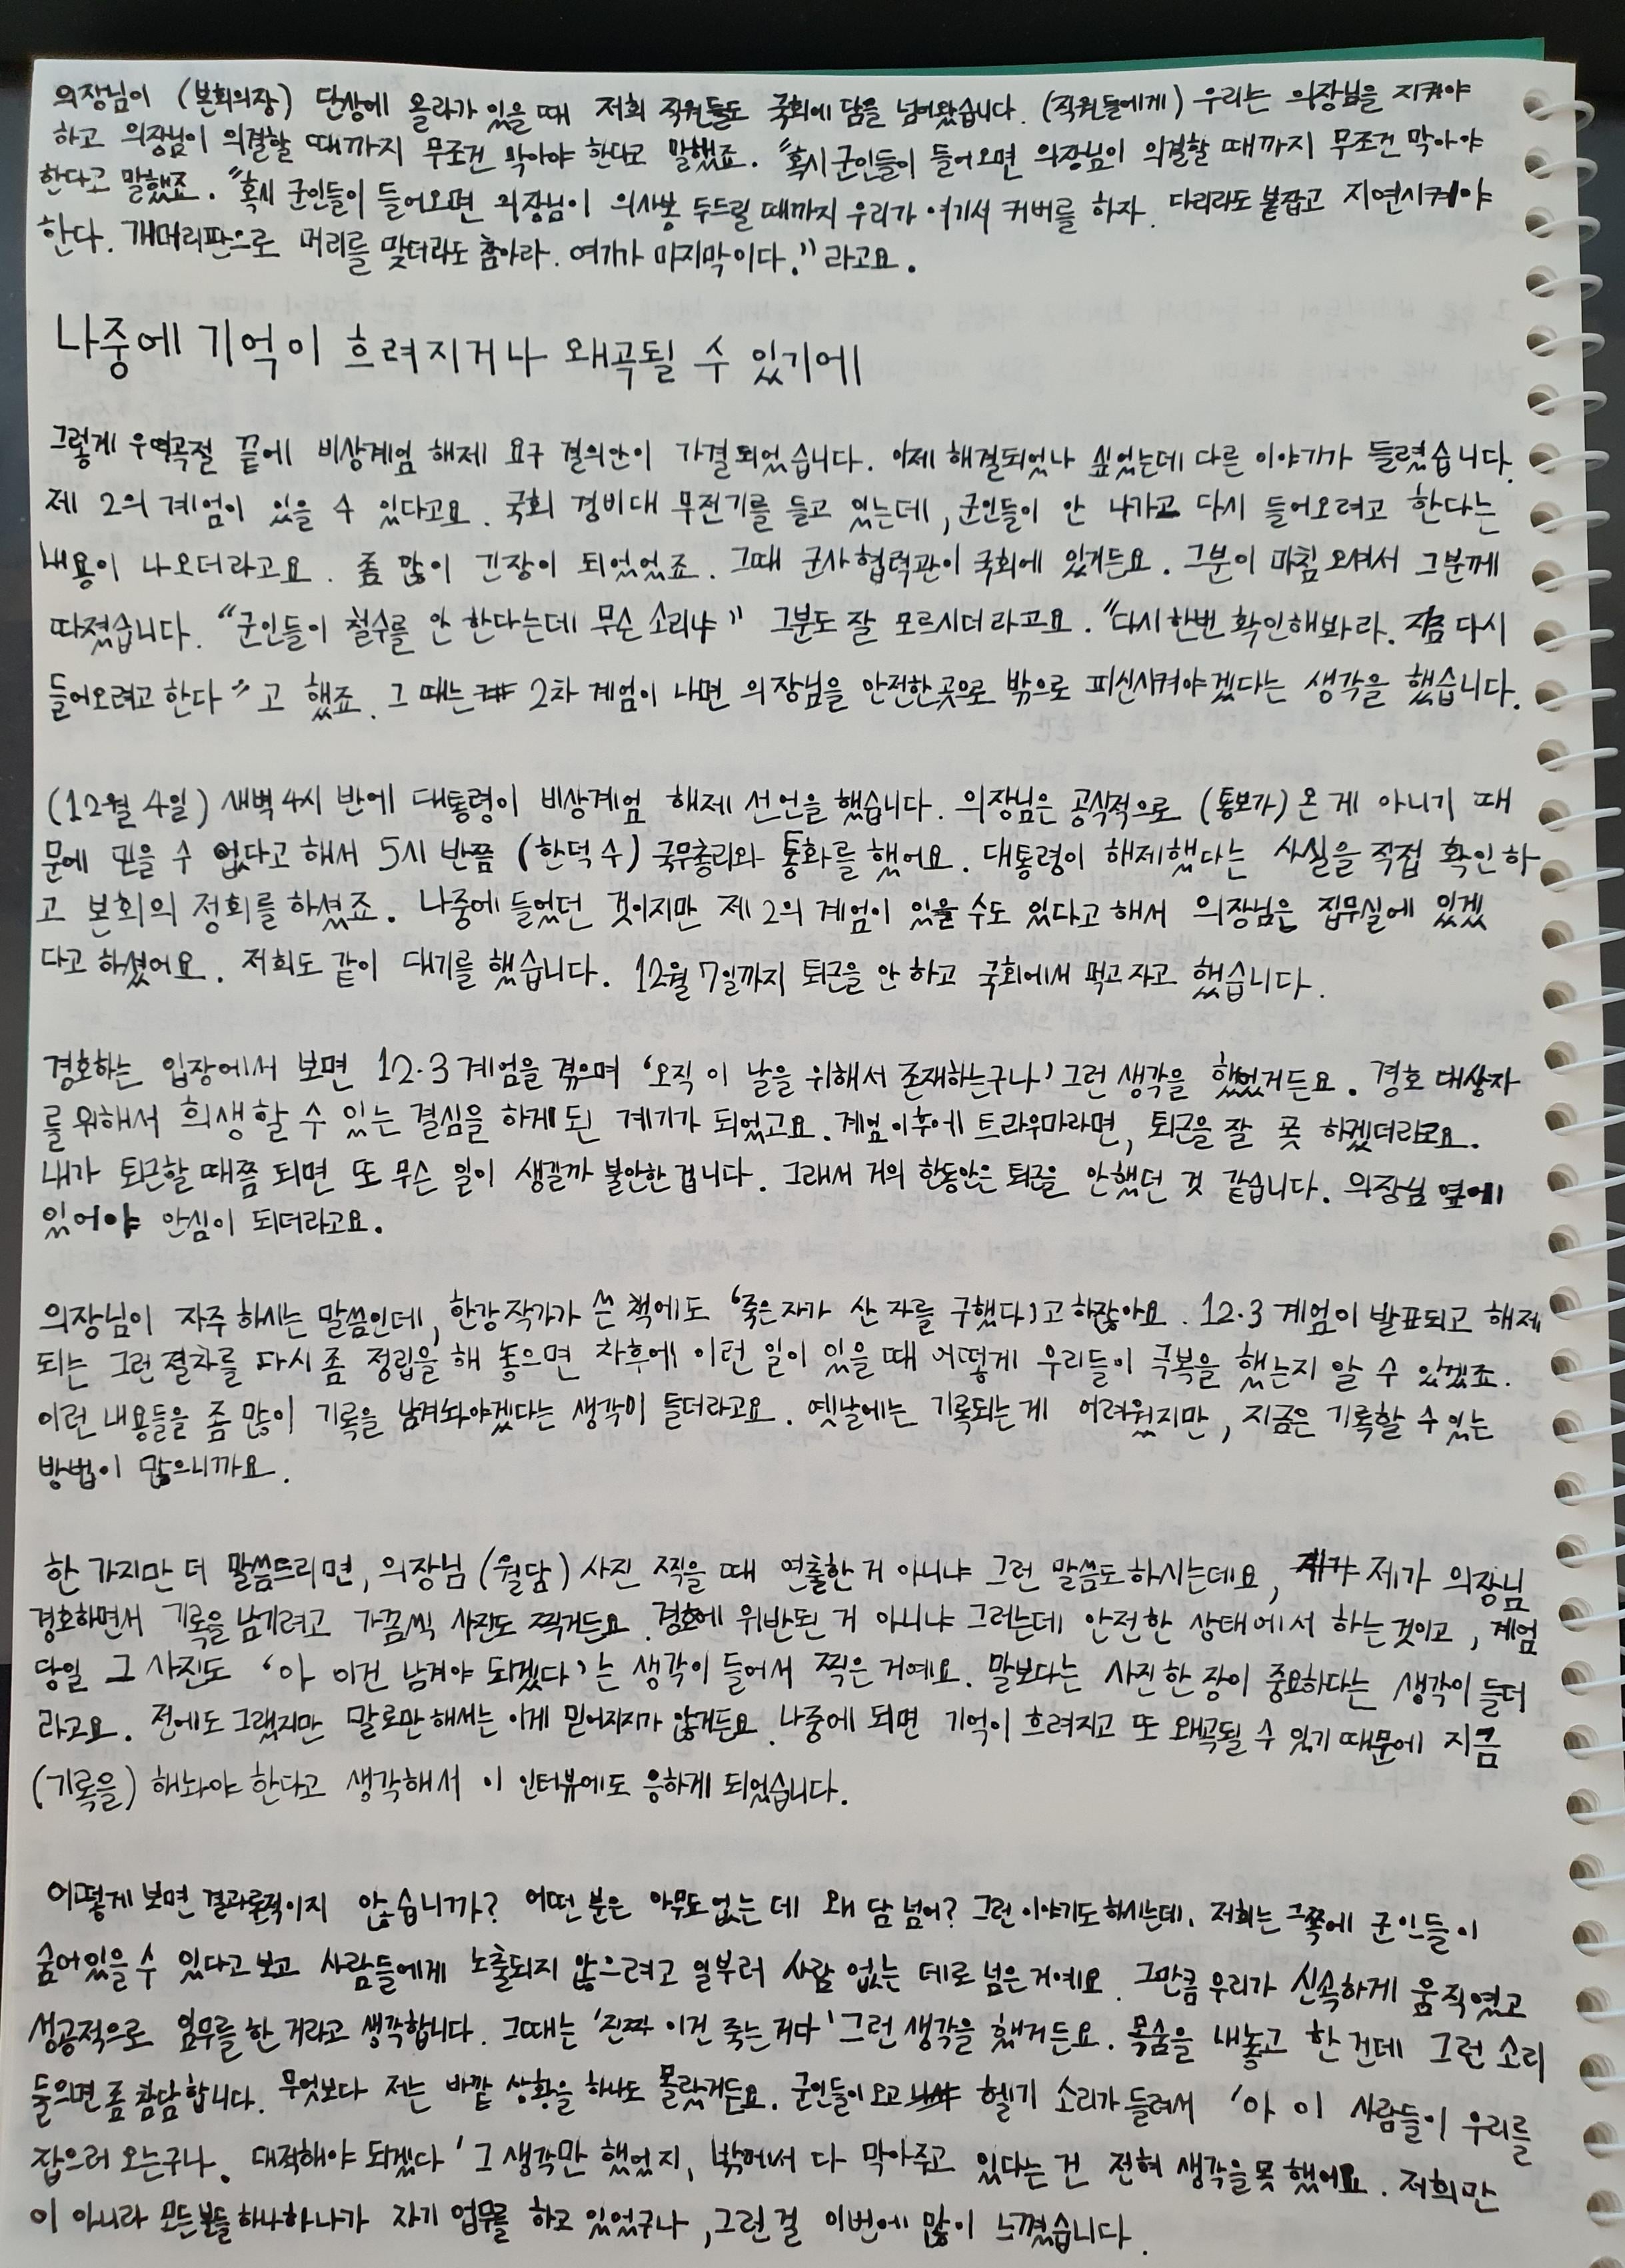 의장님이 (본회의장) 단상에 올라가 있을 때 저희 직원들도 국회에 담을 넘어왔습니다. (직원들에게) 우리는 의장님을 지켜야
하고 의장님이 의결할 때까지 무조건 막아야 한다고 말했죠. "혹시 군인들이 들어오면 의장님이 의결할 때까지 무조건 막아야
한다고 말했죠. "혹시 군인들이 들어오면 의장님이 의사봉 두드릴 때까지 우리가 여기서 커버를 하자. 다리라도 붙잡고 지연시켜야
한다. 개머리판으로 머리를 맞더라도 참아라. 여기가 마지막이다." 라고요.
나중에 기억이 흐려지거나 왜곡될 수 있기에
그렇게 우여곡절 끝에 비상계엄 해제 요구 결의안이 가결되었습니다. 이제 해결되었나 싶었는데 다른 이야기가 들렸습니다.
제 2의 계엄이 있을 수 있다고요. 국회 경비대 무전기를 들고 있는데, 군인들이 안 나가고 다시 들어오려고 한다는
내용이 나오더라고요. 좀 많이 긴장이 되었었죠. 그때 군사협력관이 국회에 있거든요. 그분이 마침 오셔서 그분께
따졌습니다. "군인들이 철수를 안 한다는데 무슨 소리냐" 그분도 잘 모르시더라고요. "다시 한번 확인해봐라. 지금 다시
들어오려고 한다"고 했죠. 그 때는 2차 계엄이 나면 의장님을 안전한 곳으로 밖으로 피신시켜야겠다는 생각을 했습니다.
(12월 4일) 새벽 4시 반에 대통령이 비상계엄 해제 선언을 했습니다. 의장님은 공식적으로 (통보가) 온 게 아니기 때
문에 믿을 수 없다고 해서 5시 반쯤 (한덕수) 국무총리와 통화를 했어요. 대통령이 해제했다는 사실을 직접 확인하
고 본회의 정회를 하셨죠. 나중에 들었던 것이지만 제 2의 계엄이 있을 수도 있다고 해서 의장님은 집무실에 있겠
다고 하셨어요. 저희도 같이 대기를 했습니다. 12월 7일까지 퇴근을 안 하고 국회에서 먹고 자고 했습니다.
경호하는 입장에서 보면 12·3 계엄을 겪으며 '오직 이 날을 위해서 존재하는구나' 그런 생각을 했었거든요. 경호 대상자
를 위해서 희생할 수 있는 결심을 하게 된 계기가 되었고요. 계엄 이후에 트라우마라면, 퇴근을 잘 못 하겠더라고요.
내가 퇴근할 때쯤 되면 또 무슨 일이 생길까 불안한 겁니다. 그래서 거의 한동안은 퇴근을 안했던 것 같습니다. 의장님 옆에
있어야 안심이 되더라고요.
의장님이 자주 하시는 말씀인데, 한강 작가가 쓴 책에도 '죽은 자가 산 자를 구했다'고 하잖아요. 12·3 계엄이 발표되고 해제
되는 그런 절차를 다시 좀 정립을 해 놓으면 차후에 이런 일이 있을 때 어떻게 우리들이 극복을 했는지 알 수 있겠죠.
이런 내용들을 좀 많이 기록을 남겨놔야겠다는 생각이 들더라고요. 옛날에는 기록되는 게 어려웠지만, 지금은 기록할 수 있는
방법이 많으니까요.
한 가지만 더 말씀드리면, 의장님 (월담) 사진 찍을 때 연출한 거 아니냐 그런 말씀도 하시는데요, 제가 의장님
경호하면서 기록을 남기려고 가끔씩 사진도 찍거든요. 경호에 위반된 거 아니냐 그러는데 안전한 상태에서 하는 것이고, 계엄
당일 그 사진도 '아 이건 남겨야 되겠다'는 생각이 들어서 찍은 거예요. 말보다는 사진 한 장이 중요하다는 생각이 들더
라고요. 전에도 그랬지만 말로만 해서는 이게 믿어지지가 않거든요. 나중에 되면 기억이 흐려지고 또 왜곡될 수 있기 때문에 지금
(기록을) 해놔야 한다고 생각해서 이 인터뷰에도 응하게 되었습니다.
어떻게 보면 결과론적이지 않습니까? 어떤 분은 아무도 없는 데 왜 담 넘어? 그런 이야기도 하시는데, 저희는 그쪽에 군인들이
숨어있을 수 있다고 보고 사람들에게 노출되지 않으려고 일부러 사람 없는 데로 넘은 거예요. 그만큼 우리가 신속하게 움직였고
성공적으로 임무를 한 거라고 생각합니다. 그때는 '진짜 이건 죽는 거다' 그런 생각을 했거든요. 목숨을 내놓고 한 건데 그런 소리
들으면 좀 참담합니다. 무엇보다 저는 바깥 상황을 하나도 몰랐거든요. 군인들이 오고 헬기 소리가 들려서 '아 이 사람들이 우리를
잡으러 오는구나. 대적해야 되겠다' 그 생각만 했었지, 밖에서 다 막아주고 있다는 건 전혀 생각을 못 했어요. 저희만
이 아니라 모든 분들 하나하나가 자기 업무를 하고 있었구나, 그런 걸 이번에 많이 느꼈습니다.